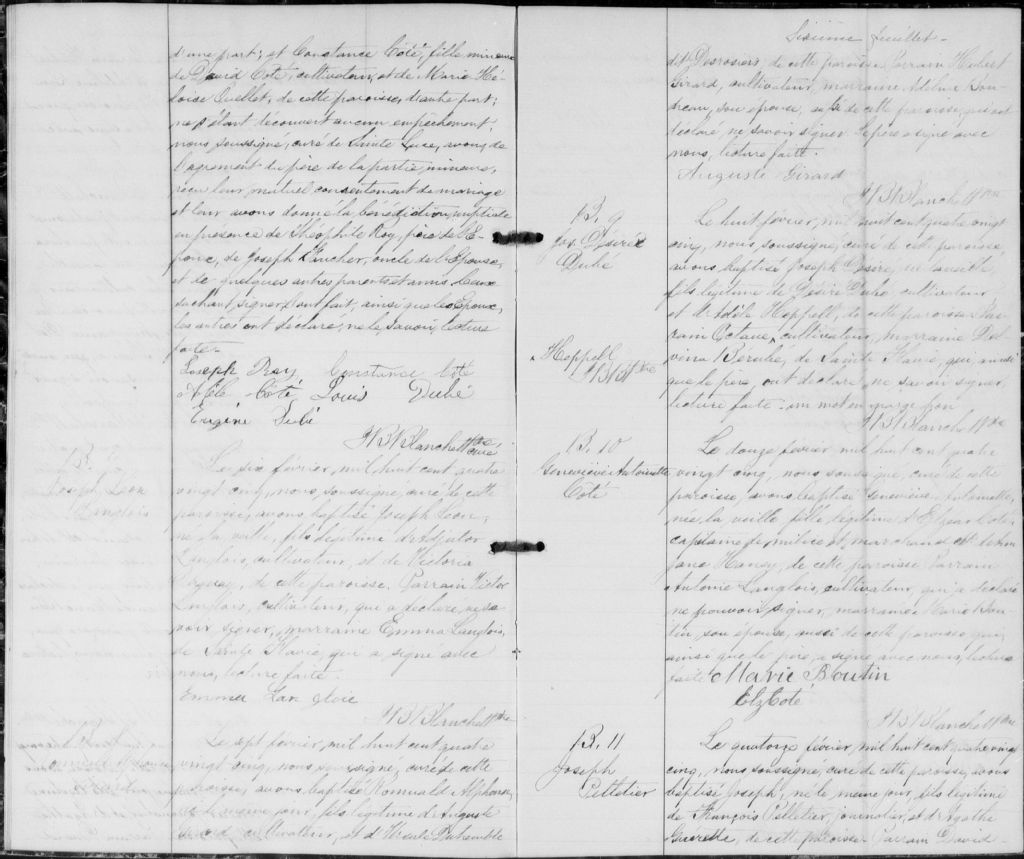 d'une part; et Constance Côté, fille mineure
de David Coté, cultivateur, et de Marie Hé-
loise Ouellet, de cette paroisse, d'autre part;
ne s'étant découvert aucun empêchement,
nous soussigné, curé de Sainte Luce, avons, de
l'agrément du père de la partie mineure,
reçu leur mutuel consentement de mariage
et leur avons donné la bénédiction nuptiale
en présence de Théophile Roy, père de l'E-
poux, de Joseph oncle de l'Epouse,
et de quelques autres parents et amis. Ceux
sachant signer l'ont fait, ainsi que les Epoux,
les autres ont déclaré ne le savoir, lecture
faite.
Joseph Roy Constance Coté
Adèle Côté Louis Dubé
Eugène Dubé
Blanchet Ptre
curé
B.
Joseph Léon
Langlois
Le six février, mil huit cent quatre
vingt cinq, nous, soussigné, curé de cette
paroisse, avons baptisé Joseph Léon,
né la veille, fils légitime d'Adjutor
Langlois, cultivateur, et de Victoria
de cette paroisse. Parrain Victor
Langlois, cultivateur, qui a déclaré ne sa-
voir signer, marraine Emma Langlois,
de Sainte Flavie, qui a signé avec
nous, lecture faite.
Emma Langlois
Blanchet Ptre
Le sept février, mil huit cent quatre
vingt cinq, nous, soussigné, curé de cette
paroisse, avons baptisé Romuald Alphonse,
né le même jour, fils légitime d'Auguste
Girard, cultivateur, et d'Ursule
Sixième Juillet
dit Desrosiers, de cette paroisse. Parrain Hubert
Girard, cultivateur, marraine Adéline Bou-
dreau, son épouse, aussi de cette paroisse, qui ont
déclaré ne savoir signer. Le père a signé avec
nous, lecture faite.
Auguste Girard
Blanchet Ptre
B. 9
Jos. Désiré
Dubé
Le huit février, mil huit cent quatre vingt
cinq, nous, soussigné, curé de cette paroisse
avons baptisé Joseph Désiré, né la veille,
fils légitime de Désiré Dubé, cultivateur,
et d'Adèle Heppell, de cette paroisse. Par-
rain Octave ^ cultivateur, marraine Del-
vina Bérubé, de Sainte Flavie, qui, ainsi
que le père, ont déclaré ne savoir signer,
lecture faite: un mot en marge bon
^ Heppell
Blanchet Ptre
B. 10
Geneviève Antoinette
Côté
Le douze février mil huit cent quatre
vingt cinq, nous, soussigné, curé de cette
paroisse, avons baptisé Geneviève Antoinette,
née la veille, fille légitime d'Elzéar Coté,
capitaine de milice et marchand, et de
Jane de cette paroisse. Parrain
Antoine Langlois, cultivateur, qui a déclaré
ne pouvoir signer, marraine Marie Bou-
tin, son épouse, aussi de cette paroisse, qui,
ainsi que le père, a signé avec nous, lecture
faite Marie Boutin
Elz Coté
Blanchet Ptre
B. 11
Joseph
Pelletier
Le quatorze février, mil huit cent quatre vingt
cinq, nous, soussigné, curé de cette paroisse, avons
baptisé Joseph, né le même jour, fils légitime
de François Pelletier, journalier, et d'Agathe
de cette paroisse. Parrain David